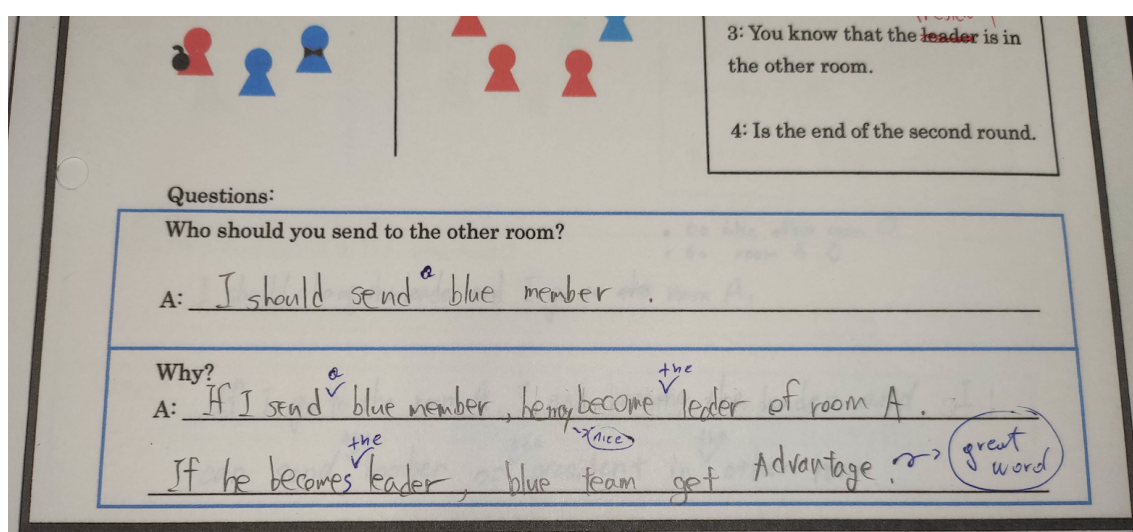 3: You know that the leader is in
the other room.
4: Is the end of the second round.
Questions:
Who should you send to the other room?
a
A: I should send blue member .
Why?
a the
A: If I send blue member , he may become leader of room A .
nice
the great
If he becomes leader , blue team get Advantage . word